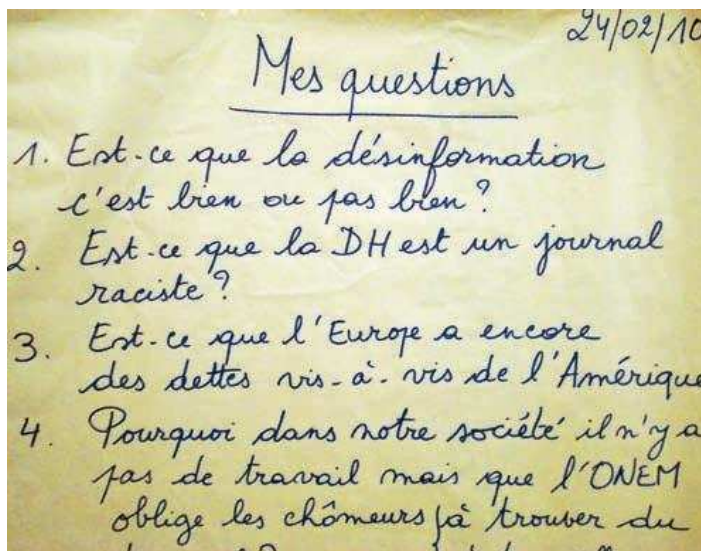 24/02/10
Mes questions
1. Est-ce que la désinformation
c'est bien ou pas bien?
2. Est-ce que la DH est un journal
raciste?
3. Est-ce que l'Europe a encore
des dettes vis-à-vis de l'Amérique
4. Pourquoi dans notre société il n'y a
pas de travail mais que l'ONEM
oblige les chômeurs à trouver du